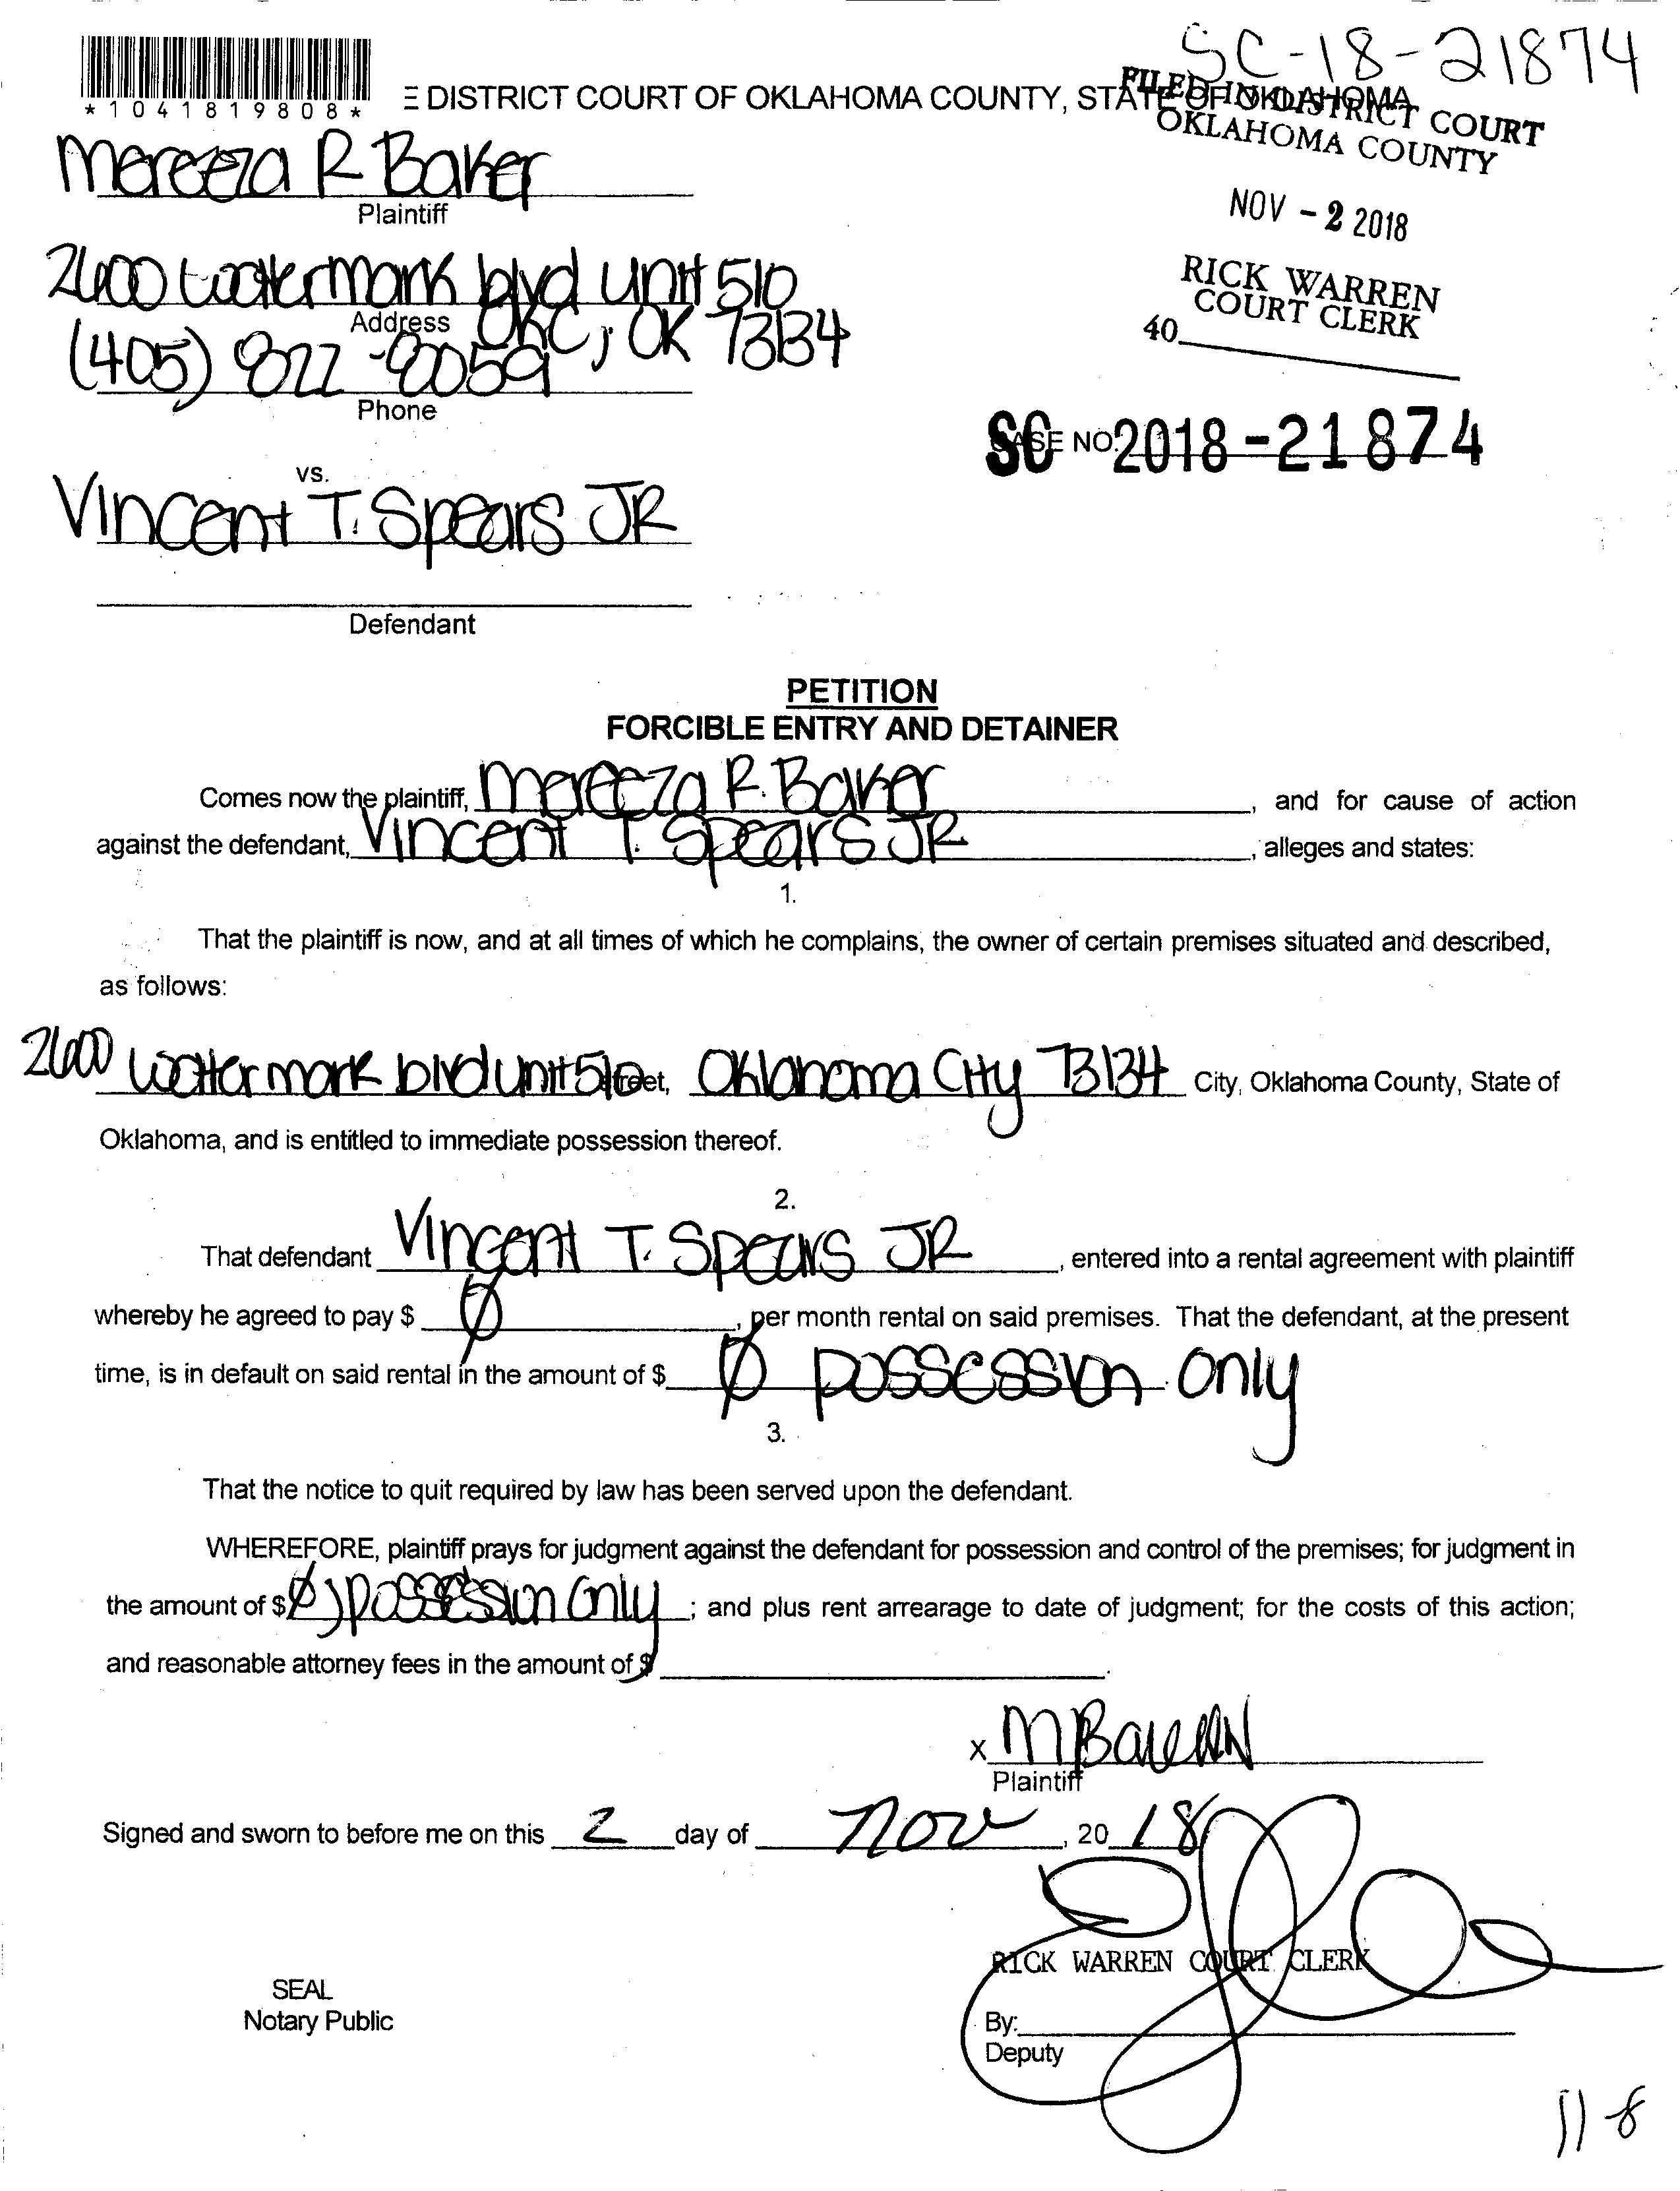 SC-18-21874
*1041819808*
E DISTRICT COURT OF OKLAHOMA COUNTY, STATE OF OKLAHOMA
FILED IN DISTRICT COURT
OKLAHOMA COUNTY
NOV - 2 2018
RICK WARREN
COURT CLERK
40
Mereeza R Baker
Plaintiff
2600 Watermark blvd unit 510
Address OKC, OK 73134
(405) 822-8059
Phone
SC CASE NO. 2018-21874
vs.
Vincent T. Spears JR
Defendant
PETITION
FORCIBLE ENTRY AND DETAINER
Comes now the plaintiff, Mereeza R. Baker, and for cause of action
against the defendant, Vincent T. Spears JR, alleges and states:
1.
That the plaintiff is now, and at all times of which he complains, the owner of certain premises situated and described,
as follows:
2600 Watermark blvd unit 510 Street, Oklahoma City 73134 City, Oklahoma County, State of
Oklahoma, and is entitled to immediate possession thereof.
2.
That defendant Vincent T. Spears JR, entered into a rental agreement with plaintiff
whereby he agreed to pay $ Ø, per month rental on said premises. That the defendant, at the present
time, is in default on said rental in the amount of $ Ø possession only
3.
That the notice to quit required by law has been served upon the defendant.
WHEREFORE, plaintiff prays for judgment against the defendant for possession and control of the premises; for judgment in
the amount of $ Ø, possession only; and plus rent arrearage to date of judgment; for the costs of this action;
and reasonable attorney fees in the amount of $.
x
Plaintiff
Signed and sworn to before me on this 2 day of Nov, 20 18
RICK WARREN COURT CLERK
SEAL
Notary Public
By:
Deputy
11-8